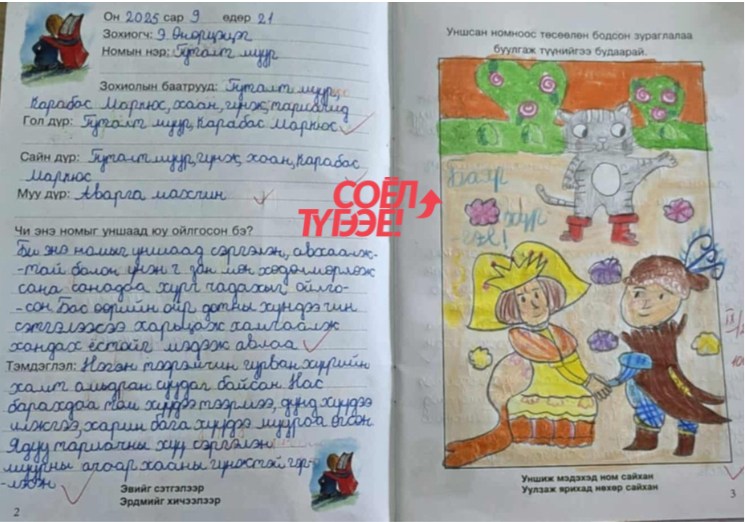 Он 2025 сар 9 өдөр 21
Зохиогч: Э. Өнөрцэцэг
Номын нэр: Гуталт муур
Зохиолын баатрууд: Гуталт муур,
Карабас Маркюс, хаан, гүнж, тариачид
Гол дүр: Гуталт муур, Карабас Маркюс
Сайн дүр: Гуталт муур, гүнж, хаан, Карабас
Маркюс
Муу дүр: Аварга махчин
Чи энэ номыг уншаад юу ойлгосон бэ?
Би энэ номыг уншаад сэргэлэн, авхаалж-
-тай болон үнэнч зан мөн хөдөлмөрлөж
сана санадаа хүрч чадахыг ойлго-
-сон. Бас өөрийн ойр дотны хүндээ чин
сэтгэлээсээ харьцаж хамгаалж
хандах ёстойг мэдэж авлаа
Тэмдэглэл: Нэгэн тээрэмчин гурван хүүгийн
хамт амьдран суудаг байсан. Нас
барахдаа том хүүдээ тээрмээ, дунд хүүдээ
илжгээ, харин бага хүүдээ муураа өгсөн
Ядуу тариачны хүү сэргэлэн
муурны ачаар хааны гүнжтэй гэр-
-лжээ
Эвийг сэтгэлээр
Эрдмийг хичээлээр
2
СОЁЛ
ТҮГЭЭЕ!
Уншсан номноос төсөөлөн бодсон зураглалаа
буулгаж түүнийгээ будаарай.
Баяр
хүр-
гэе!
Уншиж мэдэхэд ном сайхан
Уулзаж ярихад нөхөр сайхан
3